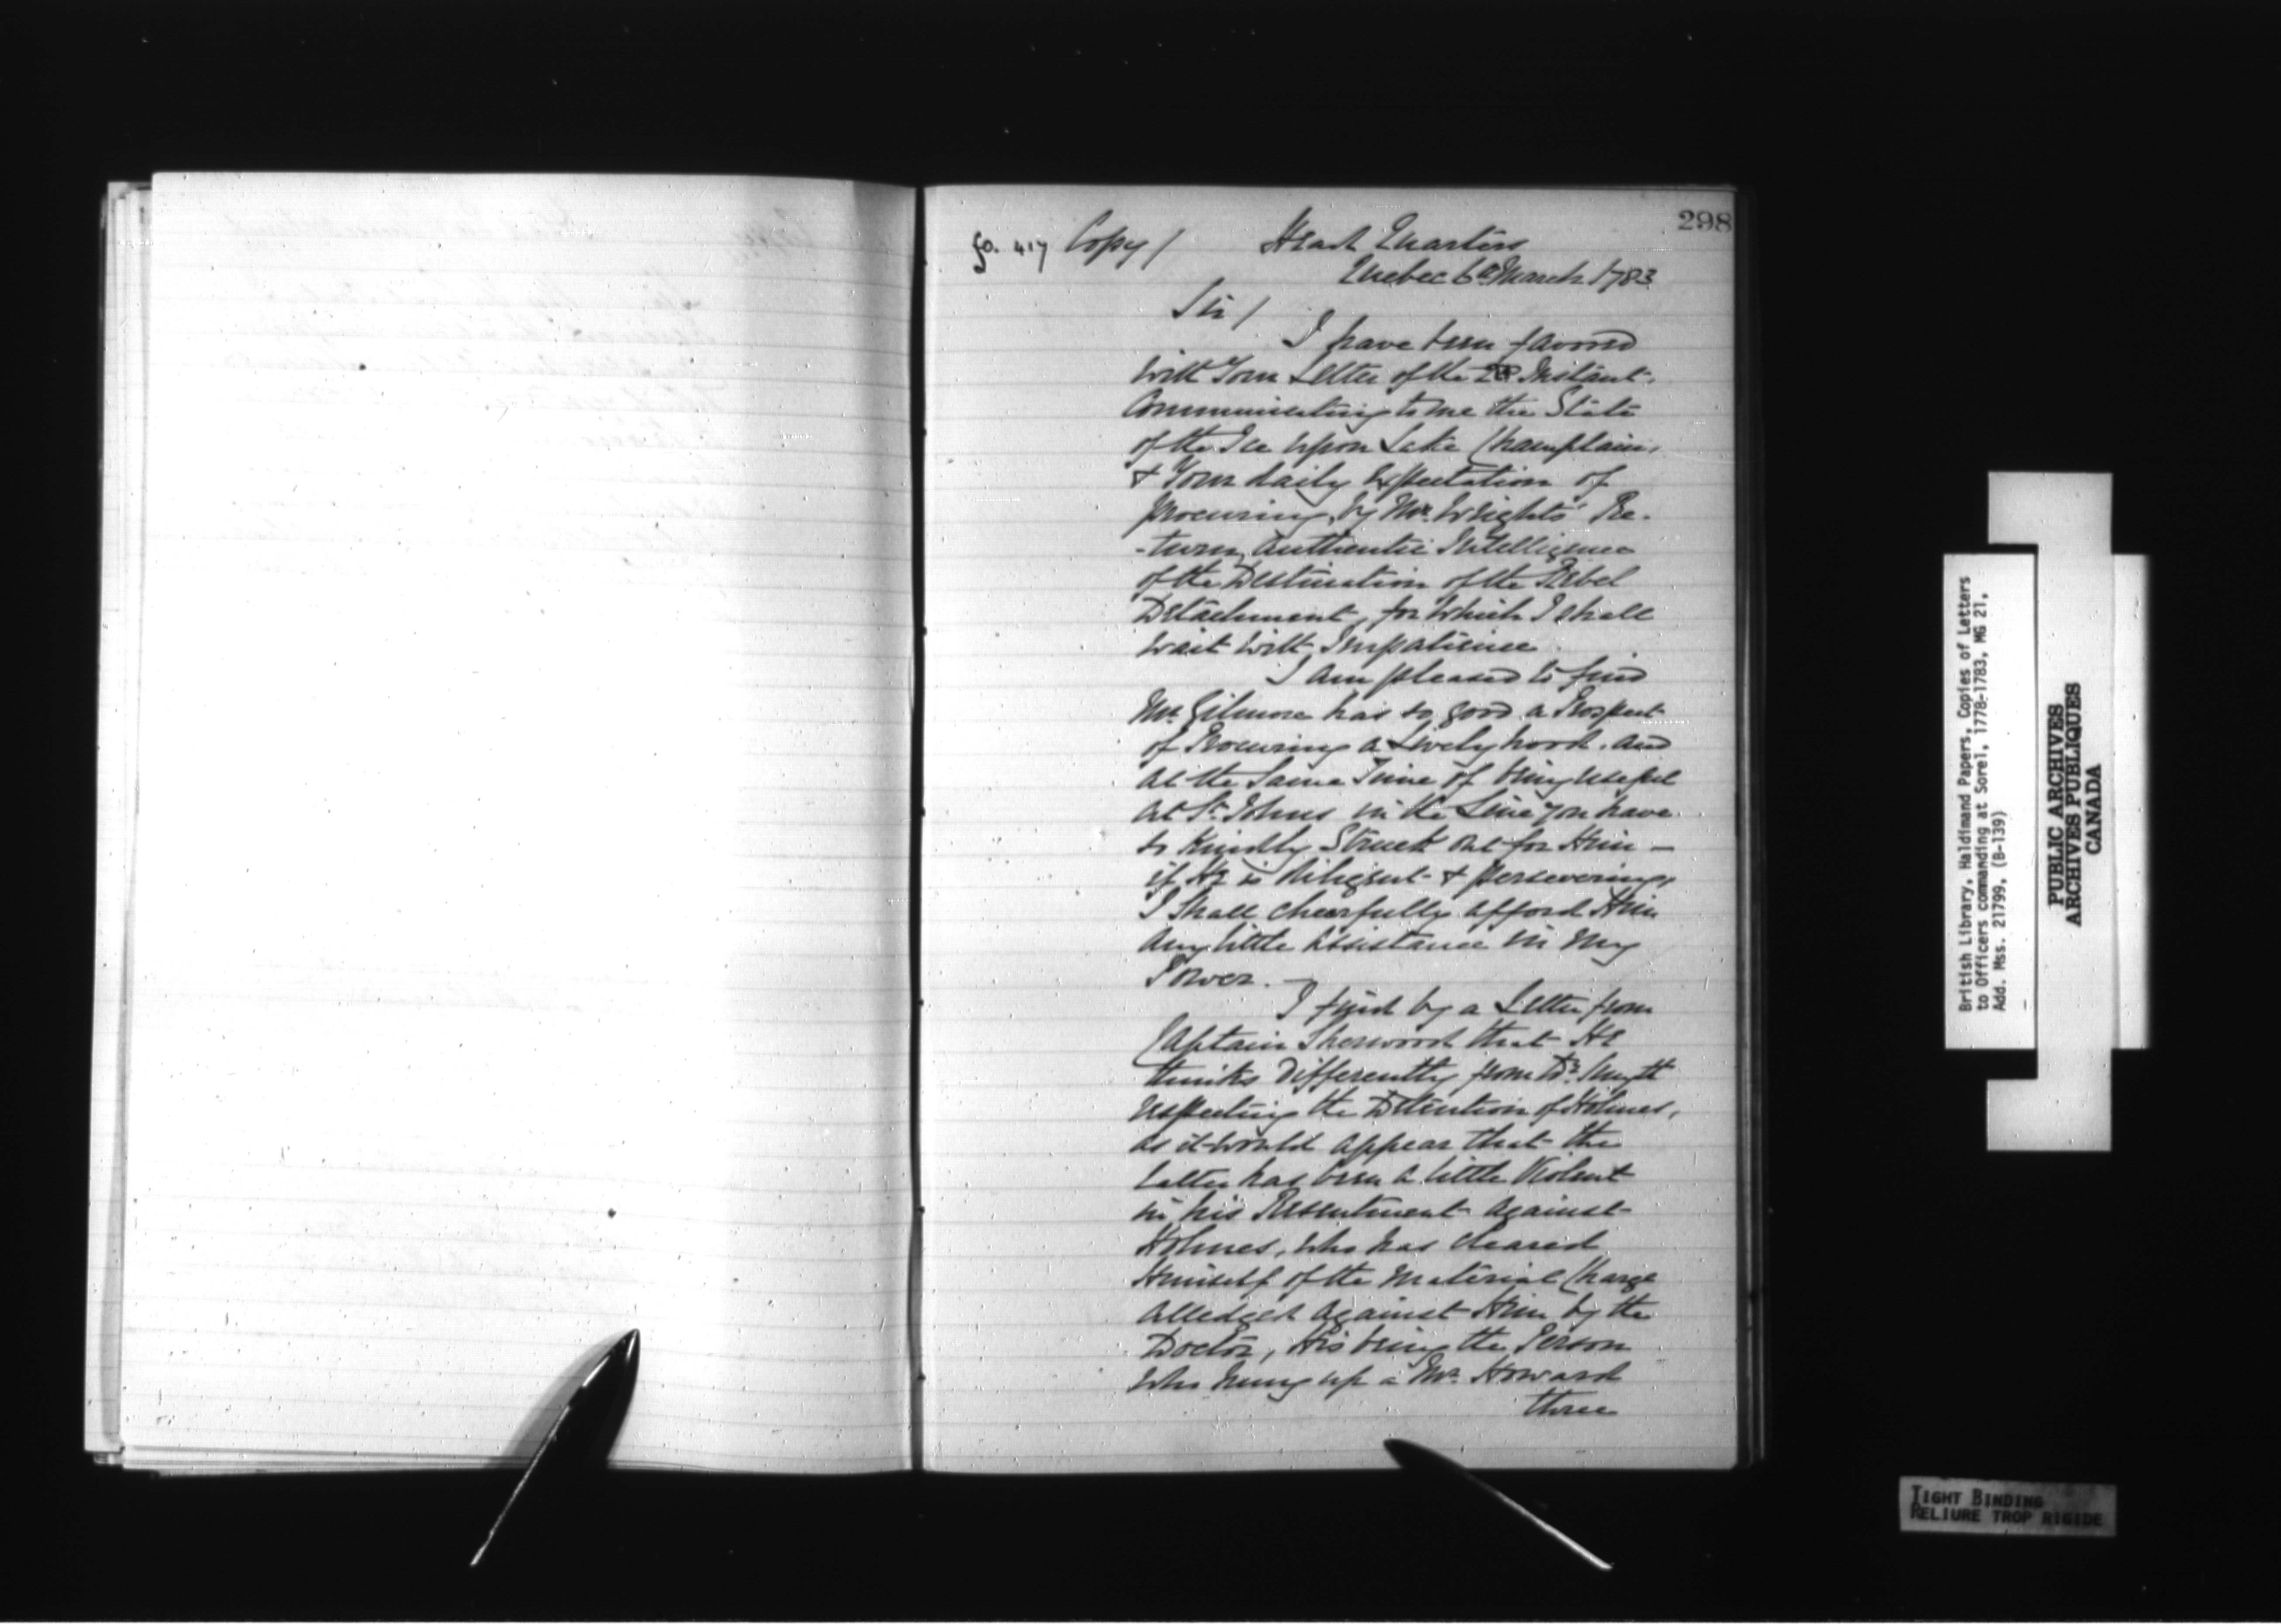 298
fo. 417 Copy / Head Quarters
Quebec 6th March 1783
Sir /
I have been favored
with Your Letter of the Instant,
Communicating to me the State
of the Ice upon Lake Champlain,
& Your daily expectation of
procuring, by Mr. Wrights Re-
-turn, authentic Intelligence
of the Destination of the Rebel
Detachment, for which I shall
wait with Impatience.
I am pleased to find
Mr. Gilmore has so good a Prospect
of Procuring a Livelyhood, and
at the Same Time of being useful
at St. Johns in the Line you have
so kindly Struck out for Him —
if He is diligent & persevering,
I shall cheerfully afford Him
any little assistance in my
Power. —
I find by a Letter from
Captain Sherwood that He
thinks differently from Dr. Smyth
respecting the Detention of Holmes,
as it would appear that the
latter has been a little Violent
in his Resentment against
Holmes, who has cleared
Himself of the material Charge
alledged against Him by the
Doctor, His being the Person
who hung up a Mr. Howard
three
British Library, Haldimand Papers, Copies of Letters
to Officers commanding at Sorel, 1778-1783, MG 21,
Add. Mss. 21799, (B-139)
PUBLIC ARCHIVES
ARCHIVES PUBLIQUES
CANADA
TIGHT BINDING
RELIURE TROP RIGIDE